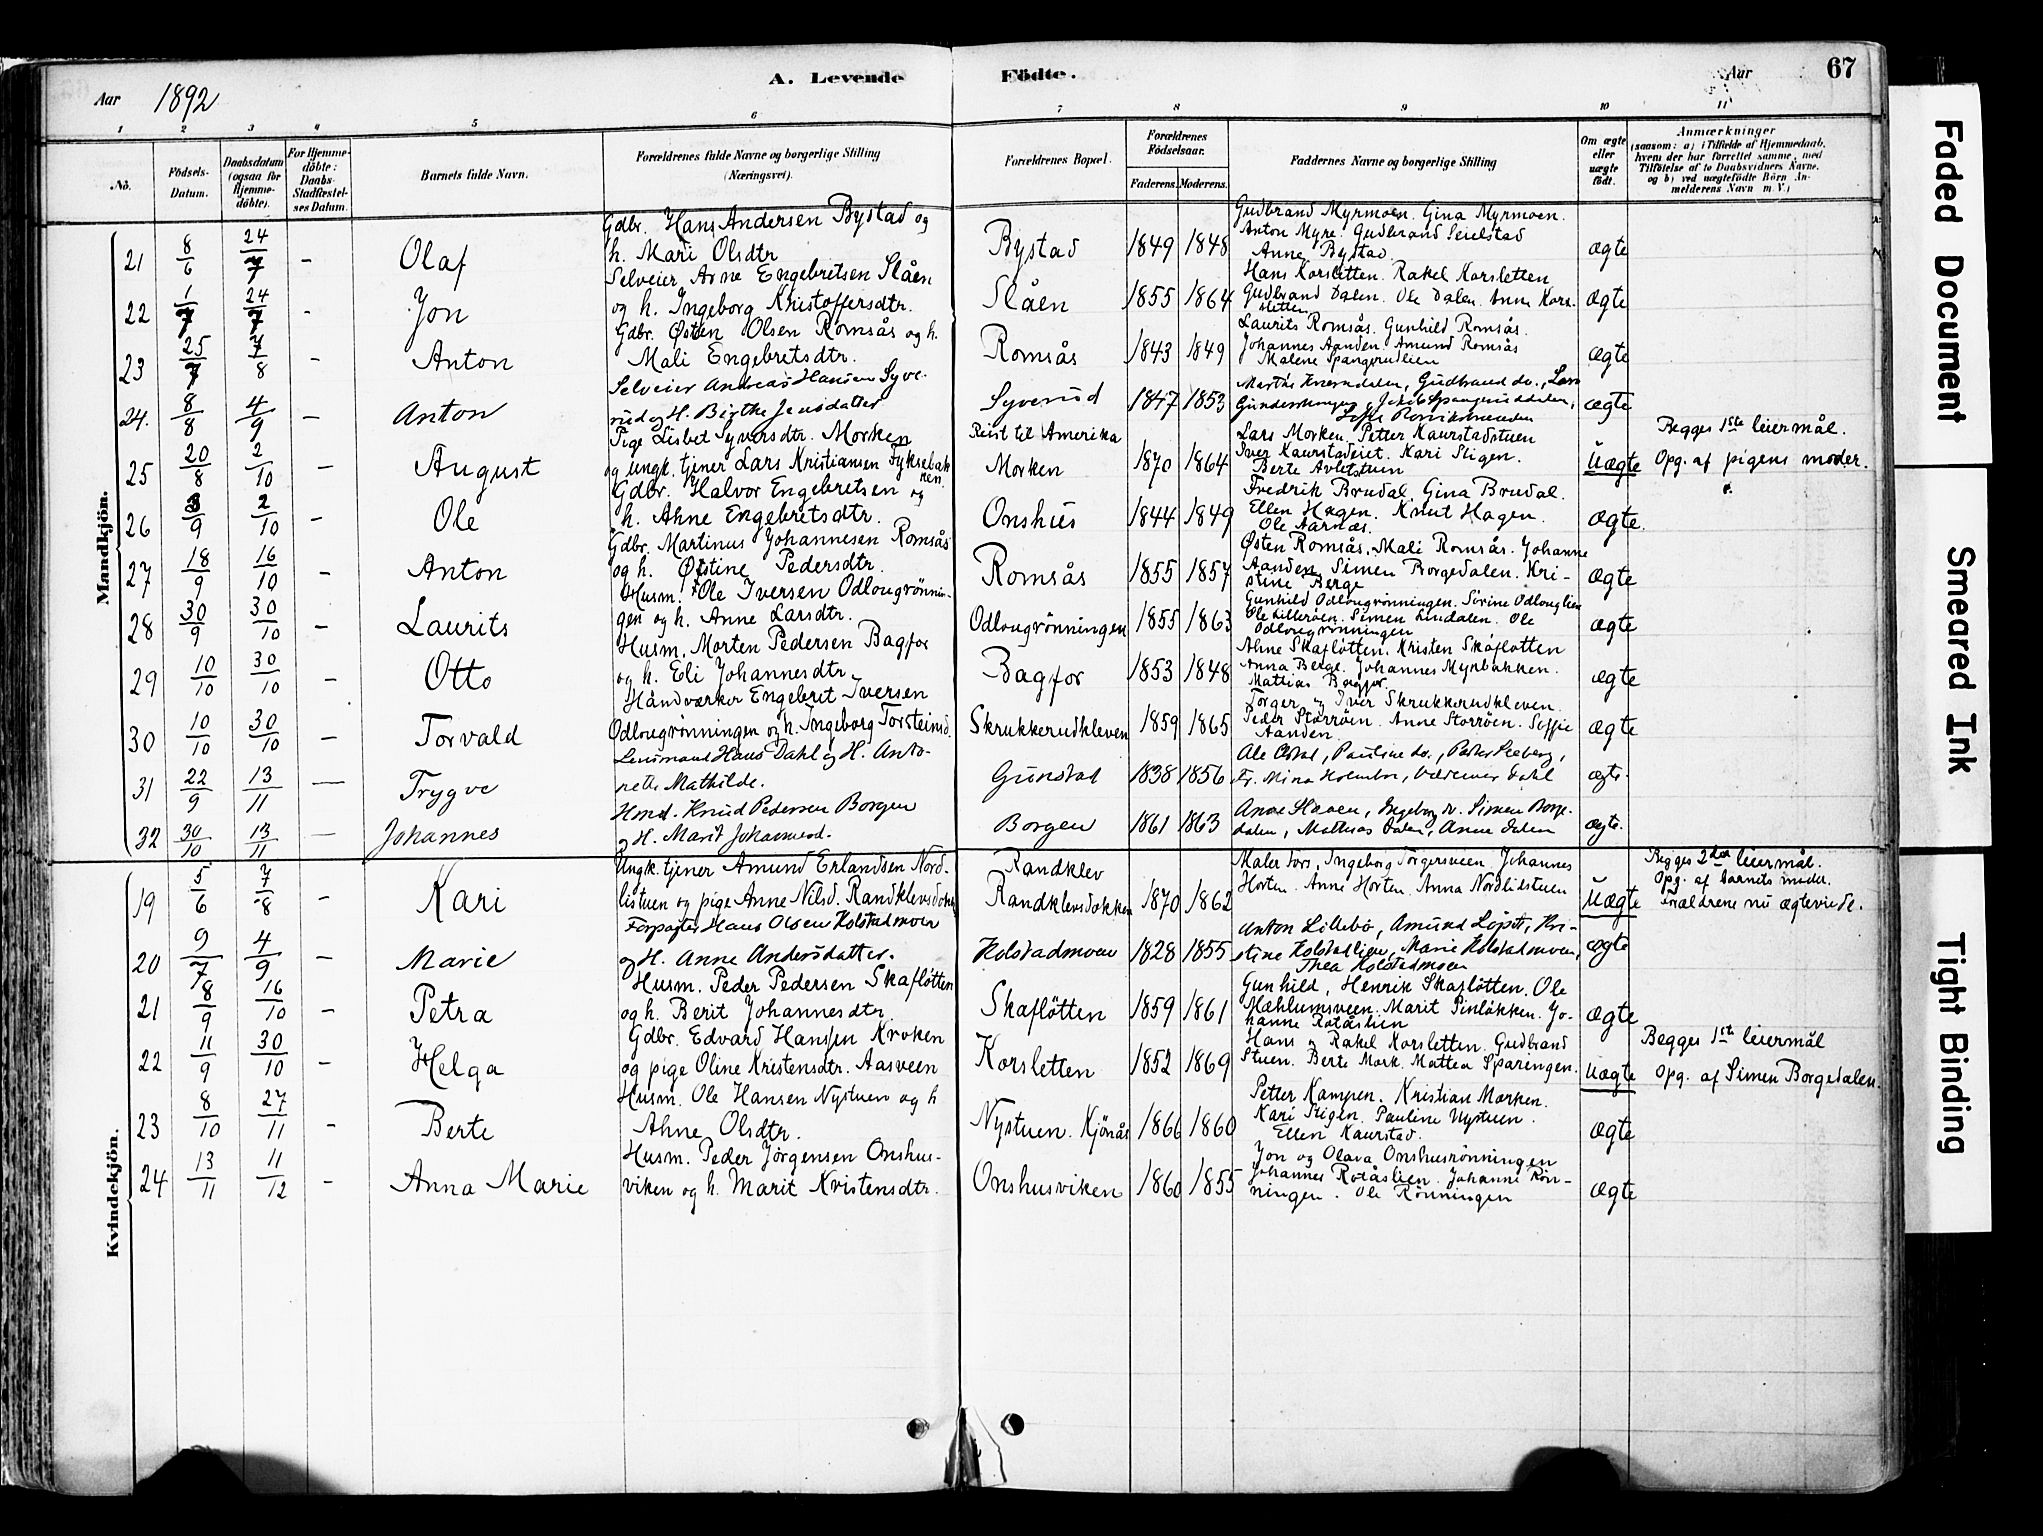 A. Levende Födte.
Aar 1892
Aar 67
1 2 3 4 5 6 7 8 9 10 11
No.
Födsels-Datum.
Daabsdatum (ogsaa for Hjemme-döbte).
For Hjemme-döbte: Daabs-Stadfæstel-ses Datum.
Barnets fulde Navn.
Forældrenes fulde Navne og borgerlige Stilling (Næringsvei).
Forældrenes Bopæl.
Forældrenes Födselsaar.
Faderens. Moderens.
Faddernes Navne og borgerlige Stilling
Om ægte eller uægte födt.
Anmærkninger
(saasom: a) i Tilfælde af Hjemmedaab, hvem der har forrettet samme, med Tilföielse af to Daabsvidners Navne, og b) ved uægtefödte Börn An-melderens Navn m. V.)
Mandkjön.
21 8/6 24/7 - Olaf
Gdbr. Hans Andersen Bystad og
h. Mari Olsdtr
Bystad 1849 1848
Gudbrand Myrmoen. Gina Myrmoen.
Anton Myre. Gudbrand Seielstad
Anne Bystad.
ægte
22 1/7 24/7 - Jon
Selveier Arne Engebretsen Slåen
og h. Ingeborg Kristoffersdtr.
Slåen 1855 1864
Hans Korsletten. Rakel Korsletten
Gudbrand Dalen. Ole Dalen. Anne Kors-
sletten
ægte
23 25/7 7/8 - Anton
Gdbr. Østen Olsen Romsås og h.
Mali Engebretsdtr.
Romsås 1843 1849
Laurits Romsås. Gunhild Romsås.
Johannes Aanden. Amund Romsås
Malene Spangrudlien
ægte
24. 8/8 4/9 - Anton
Selveier Andreas Hansen Syve-
rud og H. Birthe Jensdatter
Syverud 1847 1853
Gudbrand do., Lars
ægte
25 20/8 2/10 - August
Pige Lisbet Syversdtr. Morken
og ungk. tjener Lars Kristiansen Fyksebak
ken.
Reist til Amerika
Morken 1870 1864
Lars Morken. Petter Kaurstadstuen
Iver Kaurstadeiet. Kari Stigen.
Berte
uægte
Begges 1ste leiermål.
Opg. af pigens moder.
26 3/9 2/10 - Ole
Gdbr. Halvor Engebretsen og
h. Ahne Engebretsdtr.
Onshus 1844 1849
Fredrik Brudal. Gina Brudal.
Ellen Hagen. Knut Hagen.
Ole Aarnæs.
ægte.
27 18/9 16/10 - Anton
Gdbr. Martinus Johannesen Romsås
og h. Østine Pedersdtr.
Romsås 1855 1857
Østen Romsås. Mali Romsås. Johanne
Aanden. Simen Borgedalen. Kri-
stine Berge
ægte
28 30/9 30/10 - Laurits
Husm. Ole Iversen Odlougrönnin-
gen og h. Anne Larsdtr.
Odlougrönningen 1855 1863
Gunhild Odlougrönningen. Sörine Odlouglien
Ole Lilleröen. Simen Lindalen. Ole
Odlougrönningen
ægte
29 10/10 30/10 - Otto
Husm. Morten Pedersen Bagfor
og h. Eli Johannesdtr.
Bagfor 1853 1848
Ahne Skaflötten. Kristen Skaflötten
Anna Berge. Johannes Myrbakken.
Mattias Bagfor.
ægte
30 10/10 30/10 - Torvald
Håndværker Engebret Iversen
Odlougrönningen og h. Ingeborg Torsteinsd.
Skrukkerudkleven 1859 1865
Torger og Iver Skrukkerudkleven.
Peder Storröen. Anne Storröen. Soffie
Aanden.
ægte
31 22/9 13/11 - Trygve
Lensmand Hans Dahl og H. Anto-
nette Mathilde.
Gunstad 1838 1856
Pauline do.,
Fr. Mina Holmbo,
ægte.
32 30/10 13/11 - Johannes
Hmd. Knud Pedersen Borgen
og H. Marit Johannesd.
Borgen 1861 1863
Anne Ingeborg do. Simen Borge-
dalen, Mathias Dalen, Anne Dalen
ægte.
Kvindekjön.
19 5/6 7/8 - Kari
Ungk. tjener Amund Erlandsen Nord-
listuen og pige Anne Nilsd. Randklevsdokken
Randklev
Randklevsdokken 1870 1862
Maler Fors, Ingeborg Torgersveen. Johannes
Horten. Anne Horten. Anna Nordlistuen
uægte
Begges 2det leiermål.
Opg. af barnets moder.
Forældrene nu ægteviede.
20 9/7 4/9 - Marie
Forpagter Hans Olsen Kolstadmoen
og H. Anne Andersdatter.
Kolstadmoen 1828 1855
Anton Lillebö, Amund Kri-
stine Kolstadlien, Marie Kolstadmoen,
Thea Kolstadmoen
ægte
21 8/9 16/10 - Petra
Husm. Peder Pedersen Skaflötten
og h. Berit Johannesdtr.
Skaflötten 1859 1861
Gunhild, Henrik Skaflötten. Ole
Mæhlumsveen. Marit Pinlökken. Jo-
hanne Rotåslien
ægte
22 11/9 30/10 - Helga
Gdbr. Edvard Hansen Kroken
og pige Oline Kristensdtr. Aasveen
Korsletten 1852 1869
Hans og Rakel Korsletten. Gudbrand
Stuen. Berte Mork. Mattea Sparingen.
uægte
Begges 1ste leiermål
Opg. af Simen Borgedalen.
23 8/10 27/11 - Berte
Husm. Ole Hansen Nystuen og h
Ahne Olsdtr.
Nystuen. Kjönås 1866 1860
Petter Kampen. Kristian Morken.
Kari Stigen. Pauline Nystuen.
Ellen Kaurstad.
ægte
24 13/11 11/12 - Anna Marie
Husm. Peder Jörgensen Onshus-
viken og h. Marit Kristensdtr.
Onshusviken 1860 1855
Jon og Olava Onshusrönningen
Johannes Rotåslien. Johanne Rön-
ningen. Ole Rönningen
ægte
Faded Document
Smeared Ink
Tight Binding